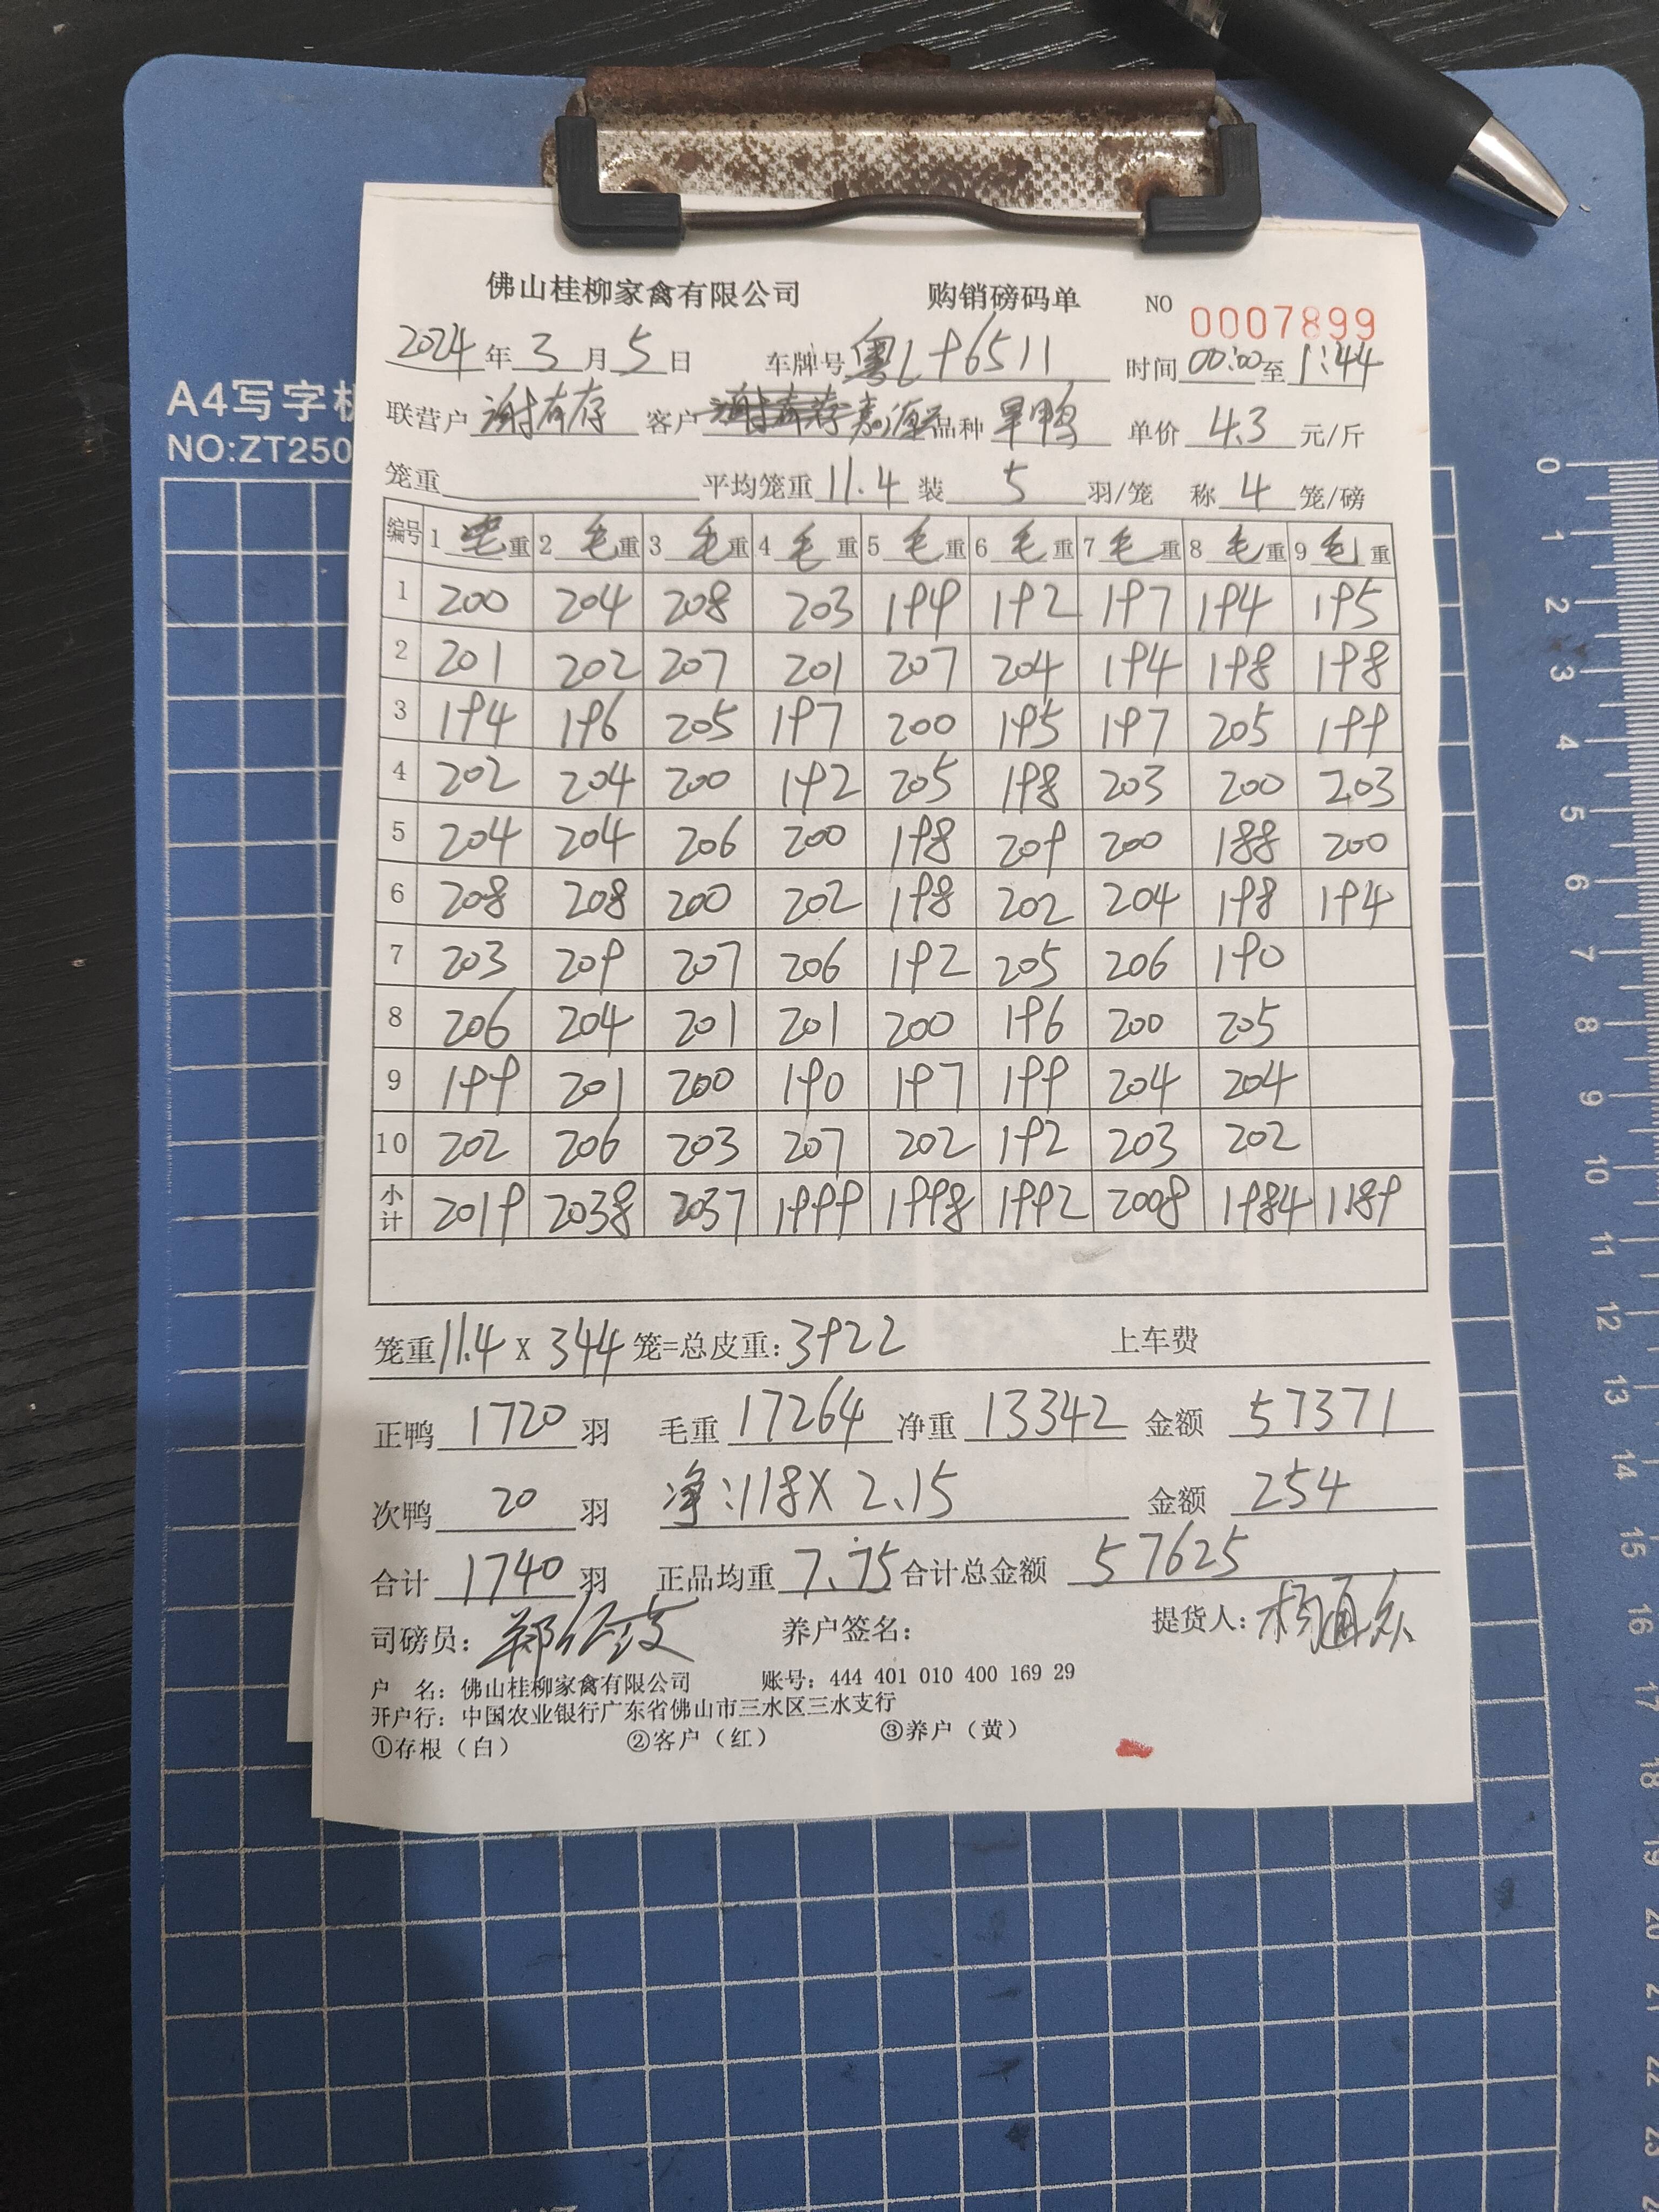 佛山桂柳家禽有限公司 购销磅码单 NO 0007899
2024年3月5日 车牌号 粤L96511 时间 00:00至1:44
A4写字板
联营户 谢有存 客户 嘉源 品种 旱鸭 单价 4.3 元/斤
NO:ZT250
笼重 平均笼重 11.4 装 5 羽/笼 称 4 笼/磅
编号 1 毛重 2 毛重 3 毛重 4 毛重 5 毛重 6 毛重 7 毛重 8 毛重 9 毛重
1 200 204 208 203 199 192 197 194 195
2 201 202 207 201 207 204 194 198 198
3 194 196 205 197 200 195 197 205 199
4 202 204 200 192 205 198 203 200 203
5 204 204 206 200 198 209 200 188 200
6 208 208 200 202 198 202 204 198 194
7 203 209 207 206 192 205 206 190
8 206 204 201 201 200 196 200 205
9 199 201 200 190 197 199 204 204
10 202 206 203 207 202 192 203 202
小计 2019 2038 2037 1999 1998 1992 2008 1984 1189
笼重 11.4 X 344 笼=总皮重: 3922 上车费
正鸭 1720 羽 毛重 17264 净重 13342 金额 57371
次鸭 20 羽 净:118X2.15 金额 254
合计 1740 羽 正品均重 7.75 合计总金额 57625
司磅员: 养户签名: 提货人: 杨通众
户 名: 佛山桂柳家禽有限公司 账号: 444 401 010 400 169 29
开户行: 中国农业银行广东省佛山市三水区三水支行
①存根(白) ②客户(红) ③养户(黄)
0
1
2
3
4
5
6
7
8
9
10
11
12
13
14
15
16
17
18
19
20
21
22
23